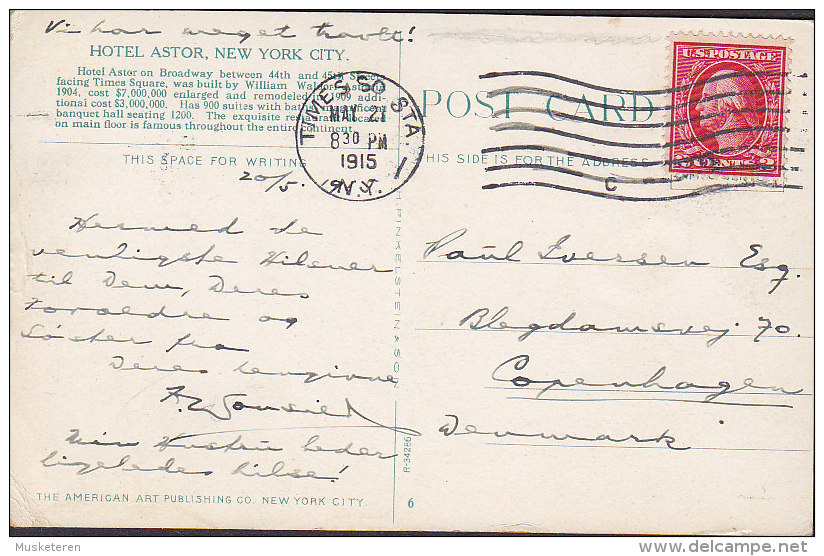 Vi har meget travlt!
HOTEL ASTOR, NEW YORK CITY.
Hotel Astor on Broadway between 44th and 45th Street
facing Times Square, was built by William Waldorf Astor in
1904, cost $7,000,000 enlarged and remodeled in 1909 addi-
tional cost $3,000,000. Has 900 suites with bath, magnificent
banquet hall seating 1200. The exquisite restaurant located
on main floor is famous throughout the entire continent.
THIS SPACE FOR WRITING
20/5.
Hermed de
venligste Hilsner
til Dem, Deres
Forældre og
Søster fra
Deres hengivne
Min Hustru beder
ligeledes hilse!
THE AMERICAN ART PUBLISHING CO. NEW YORK CITY.
TIMES SQ. STA.
MAY 21
8 30 PM
1915
N.Y.
H FINKELSTEIN & SON
R-34286
6
POST CARD
THIS SIDE IS FOR THE ADDRESS
U.S. POSTAGE
C
Paul Iversen Esq.
Blegdamsvej 70.
Copenhagen
Denmark
Musketeren
delcampe.net